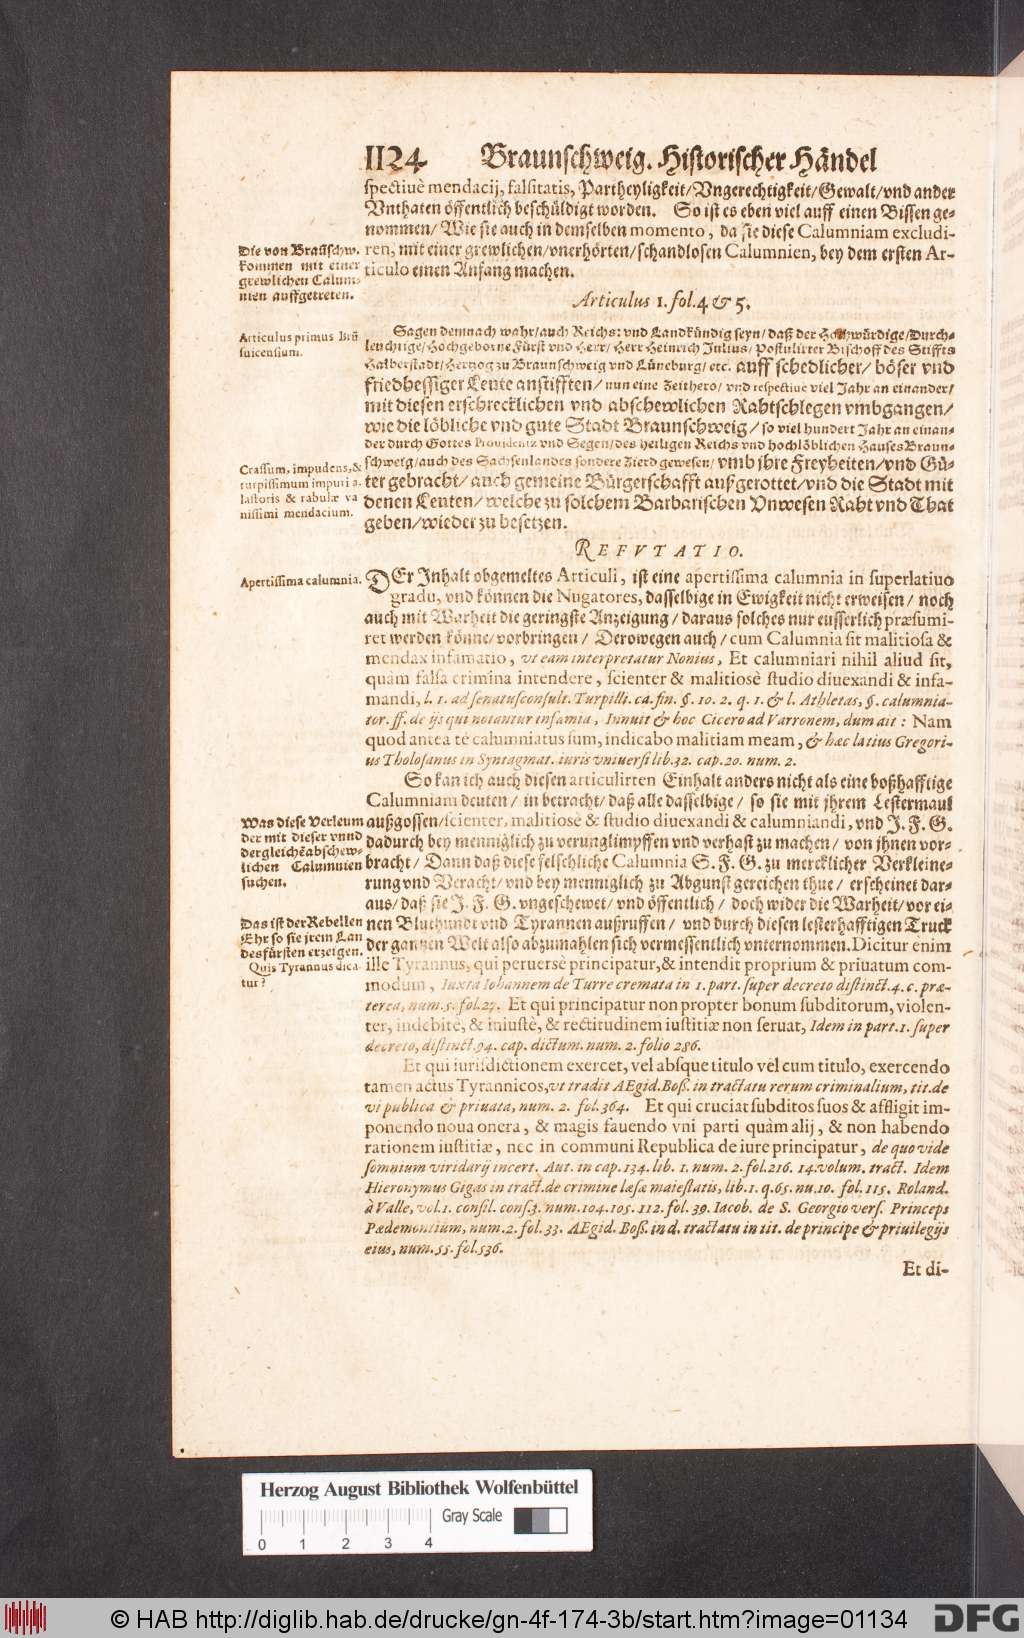 1124 Braunschweig. Historischer Händel
spectiuè mendacij, falsitatis, Partheyligkeit/Vngerechtigkeit/Gewalt/vnd ander
Vnthaten öffentlich beschüldigt worden. So ist es eben viel auff einen Bissen ge-
nommen/ Wie sie auch in demselben momento, da sie diese Calumniam excludi-
ren, mit einer grewlichen/vnerhörten/schandlosen Calumnien, bey dem ersten Ar-
ticulo einen Anfang machen.
Die von Braũschw.
kommen mit einer
grewlichen Calum-
nien auffgetreten.
Articulus 1. fol. 4 & 5.
Articulus primus Brũ
suicensium.
Sagen demnach wahr/auch Reichs: vnd Landkündig seyn/ daß der Hochwürdige/Durch-
leuchtige/Hochgeborne Fürst vnd Herr/ Herr Heinrich Julius/ Postulirter Bischoff des Stiffts
Halberstadt/Hertzog zu Braunschweig vnd Lüneburg/ etc. auff schedlicher/ böser vnd
friedhessiger Leute anstifften/ nun eine Zeithero/ vnd respectiuè viel Jahr an einander/
mit diesen erschrecklichen vnd abschewlichen Rahtschlegen vmbgangen/
wie die löbliche vnd gute Stadt Braunschweig/ so viel hundert Jahr an einan-
der durch Gottes Providentz vnd Segen/des heiligen Reichs vnd hochlöblichen Hauses Braun-
schweig/auch des Sachsenlandes sondere Zierd gewesen/ vmb jhre Freyheiten/vnd Gü-
ter gebracht/ auch gemeine Bürgerschafft außgerottet/vnd die Stadt mit
denen Leuten/ welche zu solchem Barbarischen Vnwesen Raht vnd That
geben/wieder zu besetzen.
Crassum, impudens, &
turpissimum impuri a-
lastoris & rabulæ va
nissimi mendacium.
REFVTATIO.
Apertissima calumnia.
DEr Inhalt obgemeltes Articuli, ist eine apertissima calumnia in superlatiuo
gradu, vnd können die Nugatores, dasselbige in Ewigkeit nicht erweisen/ noch
auch mit Warheit die geringste Anzeigung/ daraus solches nur eusserlich præsumi-
ret werden könne/vorbringen/ Derowegen auch/ cum Calumnia sit malitiosa &
mendax infamatio, vt eam interpretatur Nonius, Et calumniari nihil aliud sit,
quàm falsa crimina intendere, scienter & malitiosè studio diuexandi & infa-
mandi, l. 1. ad senatusconsult. Turpill. ca. fin. §. 10. 2. q. 1. & l. Athletas, §. calumnia-
tor. ff. de ijs qui notantur infamia, Innuit & hoc Cicero ad Varronem, dum ait: Nam
quod antea te calumniatus sum, indicabo malitiam meam, & hæc latius Gregori-
us Tholosanus in Syntagmat. iuris vniuersi lib. 32. cap. 20. num. 2.
So kan ich auch diesen articulirten Einhalt anders nicht als eine boßhafftige
Calumniam deuten/ in betracht/ daß alle dasselbige/ so sie mit jhrem Lestermaul
außgossen/scienter, malitiosè & studio diuexandi & calumniandi, vnd J. F. G.
dadurch bey menniglich zu verunglimpffen vnd verhast zu machen/ von jhnen vor-
bracht/ Dann daß diese felschliche Calumnia S. F. G. zu mercklicher Verkleine-
rung vnd Veracht/ vnd bey menniglich zu Abgunst gereichen thue/ erscheinet dar-
aus/ daß sie J. F. G. vngeschewet/ vnd öffentlich/ doch wider die Warheit/vor ei-
nen Bluthundt vnd Tyrannen außruffen/ vnd durch diesen lesterhafftigen Truck
der gantzen Welt also abzumahlen sich vermessentlich vnternommen. Dicitur enim
ille Tyrannus, qui peruersè principatur, & intendit proprium & priuatum com-
modum, Iuxta Iohannem de Turre cremata in 1. part. super decreto distinct. 4. c. præ-
terea, num. 5. fol. 27. Et qui principatur non propter bonum subditorum, violen-
ter, indebitè, & iniustè, & rectitudinem iustitiæ non seruat, Idem in part. 1. super
decreto, distinct. 94. cap. dictum. num. 2. folio 286.
Was diese Verleum
der mit dieser vnnd
dergleichẽ abschew-
lichen Calumnien
suchen.
Das ist der Rebellen
Ehr so sie jrem Lan
desfürsten erzeigen.
Quis Tyrannus dica-
tur?
Et qui iurisdictionem exercet, vel absque titulo vel cum titulo, exercendo
tamen actus Tyrannicos, vt tradit AEgid. Boß. in tractatu rerum criminalium, tit. de
vi publica & priuata, num. 2. fol. 364. Et qui cruciat subditos suos & affligit im-
ponendo noua onera, & magis fauendo vni parti quàm alij, & non habendo
rationem iustitiæ, nec in communi Republica de iure principatur, de quo vide
somnium viridarij incert. Aut. in cap. 134. lib. 1. num. 2. fol. 216. 14. volum. tract. Idem
Hieronymus Gigas in tract. de crimine læsæ maiestatis, lib. 1. q. 65. nu. 10. fol. 115. Roland.
à Valle, vol. 1. consil. cons. 3. num. 104. 105. 112. fol. 39. Iacob. de S. Georgio vers. Princeps
Pædemontium, num. 2. fol. 33. AEgid. Boß. in d. tractatu in tit. de principe & priuilegijs
eius, num. 55. fol. 536.
Et di-
Herzog August Bibliothek Wolfenbüttel
Gray Scale
0 1 2 3 4
© HAB http://diglib.hab.de/drucke/gn-4f-174-3b/start.htm?image=01134
DFG